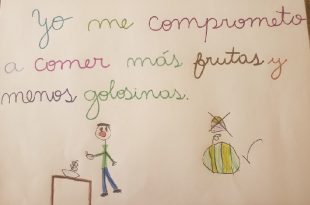 Yo me comprometo
a comer más frutas y
menos golosinas.